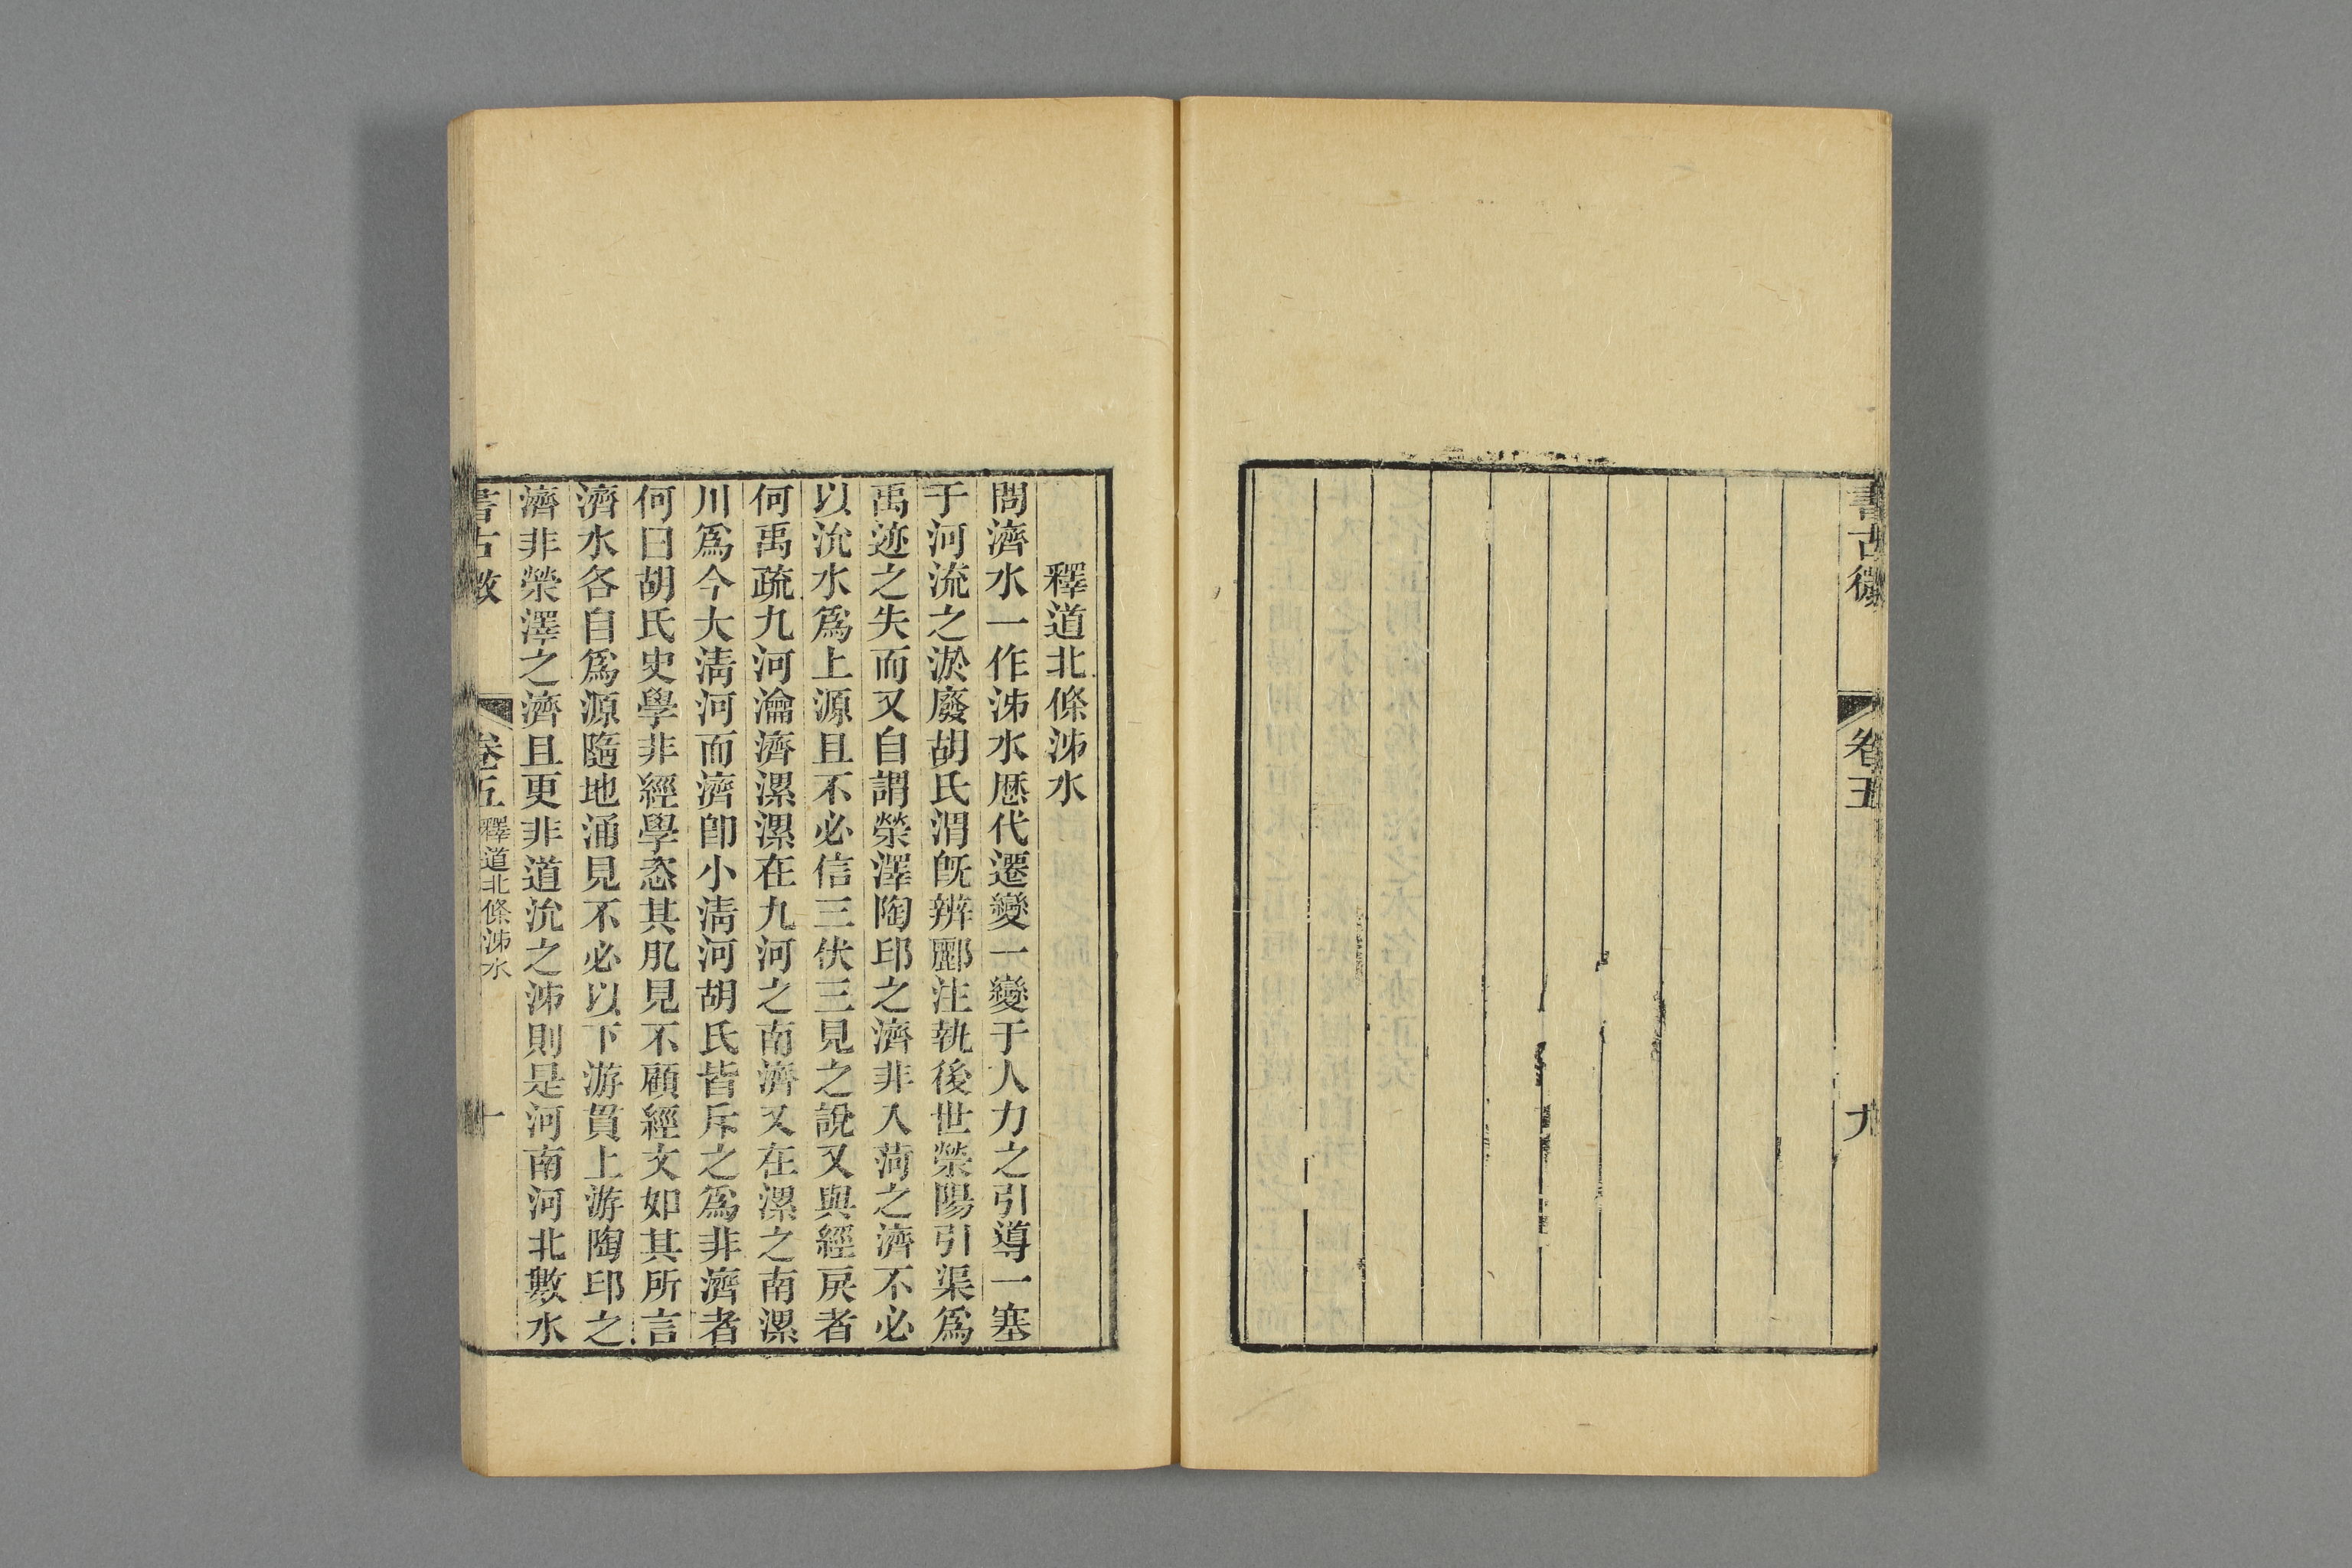 書古微
卷五
九
釋道北條泲水
問濟水一作泲水厯代遷變一變于人力之引導一塞
于河流之淤廢胡氏渭旣辨酈注執後世滎陽引渠爲
禹迹之失而又自謂滎澤陶邱之濟非入菏之濟不必
以沇水爲上源且不必信三伏三見之說又與經戾者
何禹疏九河瀹濟漯漯在九河之南濟又在漯之南漯
川爲今大淸河而濟卽小淸河胡氏皆斥之爲非濟者
何曰胡氏史學非經學恣其肊見不顧經文如其所言
濟水各自爲源隨地涌見不必以下游貫上游陶邱之
濟非滎澤之濟且更非道沇之泲則是河南河北數水
書古微
卷五
釋道北條泲水
十